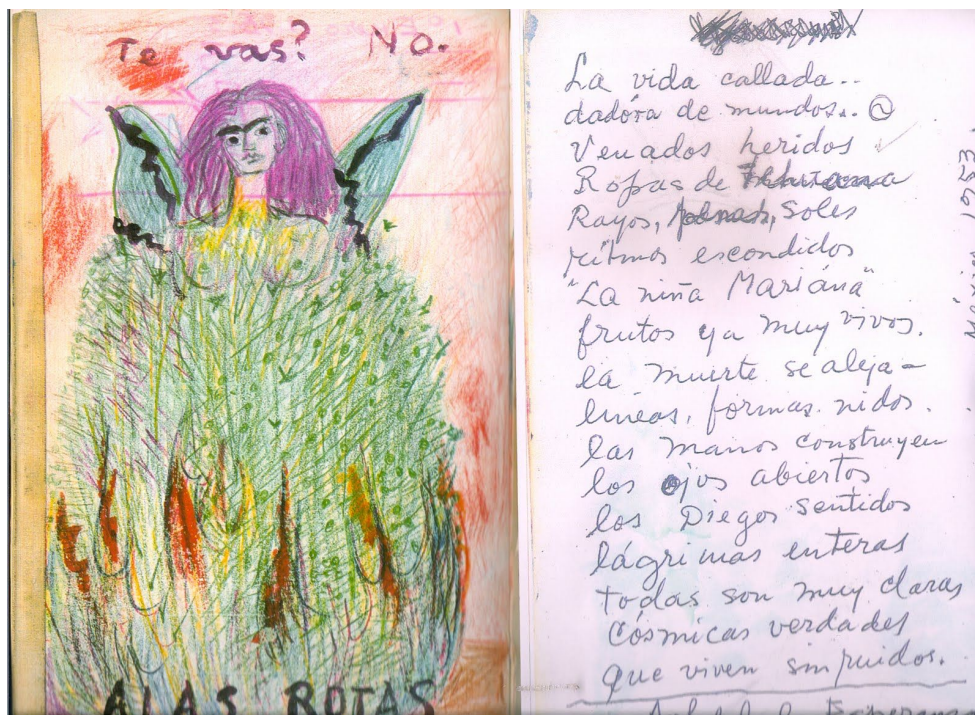 Te vas? No.
ALAS ROTAS
La vida callada..
dadóra de mundos..
Venados heridos
Ropas de Tehuana
Rayos, penas, Soles
ritmos escondidos
"La niña Mariána"
frutos ya muy vivos.
la muerte se aleja –
lineas, formas. nidos.
las manos construyen
los ojos abiertos
los Diegos sentidos
lágrimas enteras
todas son muy claras
Cósmicas verdades
que viven sin ruidos.
Arbol de la Esperanza
1953